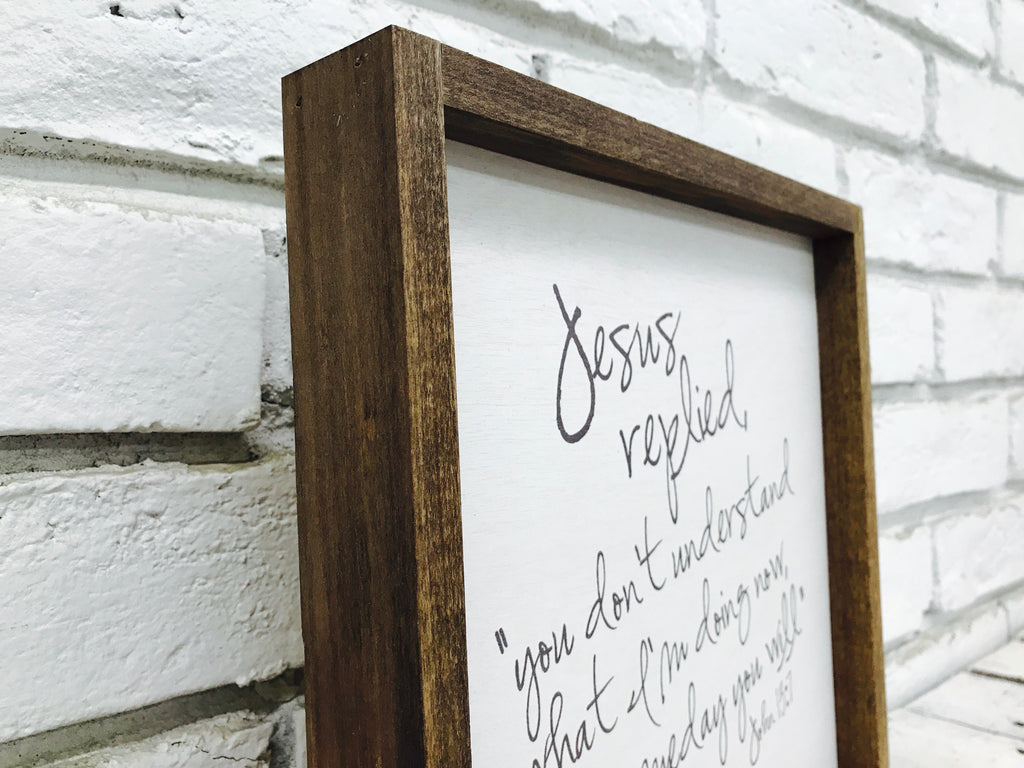 Jesus
replied,
"you don't understand
what I'm doing now,
meday you will"
John 13:7